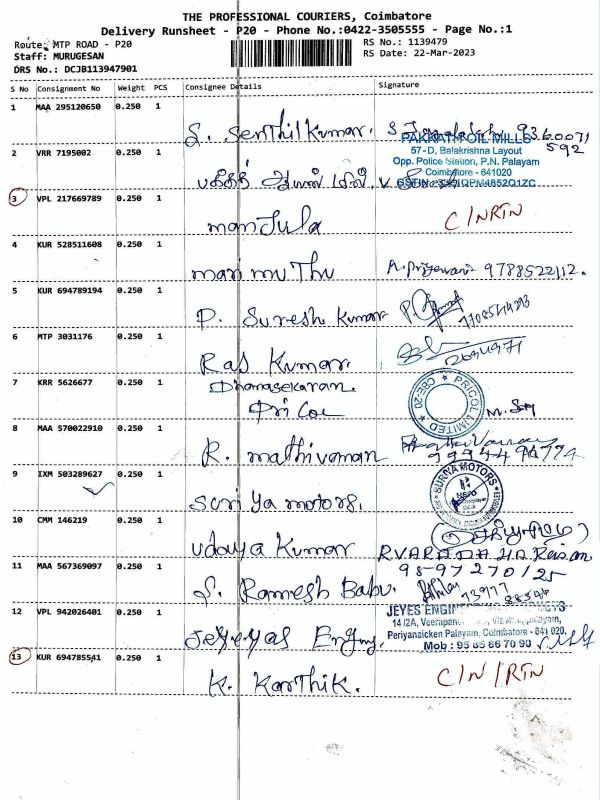 THE PROFESSIONAL COURIERS, Coimbatore
Delivery Runsheet - P20 - Phone No.:0422-3505555 - Page No.:1
Route: MTP ROAD - P20
RS No.: 1139479
Staff: MURUGESAN
RS Date: 22-Mar-2023
DRS No.: DCJB113947901
S No Consignment No Weight PCS Consignee Details Signature
1 MAA 295120650 0.250 1
S. Senthil Kumar.
PAKKRATH OIL MILLS
57-D, Balakrishna Layout
2 VRR 7195002 0.250 1
592
Opp. Police Station, P.N. Palayam
Coimbatore - 641020
ஆயில் மில்
3 VPL 217669789 0.250 1
manjula
C/N RTN
4 KUR 528511608 0.250 1
mari mu Thu
9788522112.
5 KUR 694789194 0.250 1
P. Suresh Kumar
6 MTP 3031176 0.250 1
Raj Kumar.
7 KRR 5626677 0.250 1
Dhanasekaran.
Pricol
PRICOL LIMITED
CBE-20
8 MAA 570022910 0.250 1
R. mathivanan
9994494774
9 IXM 503289627 0.250 1
Surya motors.
SURNA MOTORS
10 CMM 146219 0.250 1
udaya Kumar
11 MAA 567369097 0.250 1
S. Ramesh Babu.
12 VPL 942026401 0.250 1
Jeyeyas Engg.
14 /2A, Veerapandi
Periyanaicken Palayam, Coimbatore - 641 020.
13 KUR 694785541 0.250 1
Mob : 95 85 86 70 90
K. Karthik.
C/N / RTN